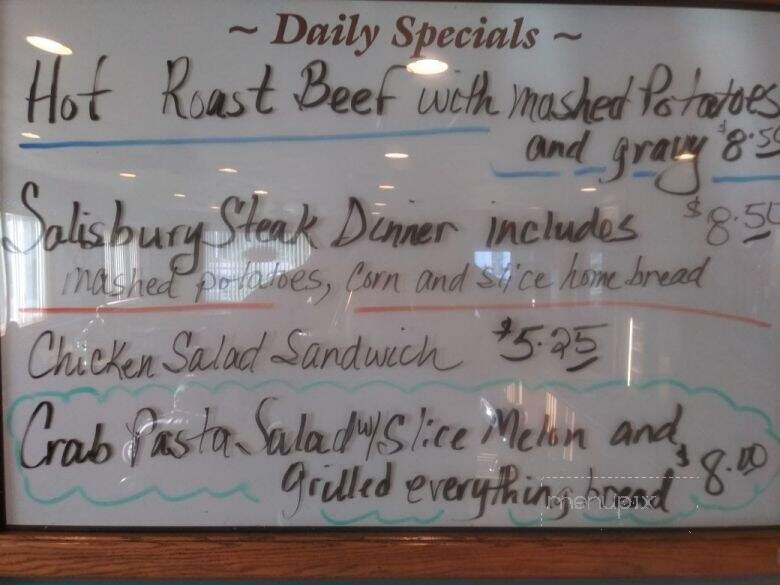 ~ Daily Specials ~
Hot Roast Beef with mashed Potatoes
and gravy $8.50
Salisbury Steak Dinner includes $8.50
mashed potatoes, corn and slice home bread
Chicken Salad Sandwich $5.25
Crab Pasta Salad w/ Slice Melon and
grilled everything bread $8.00
menupix